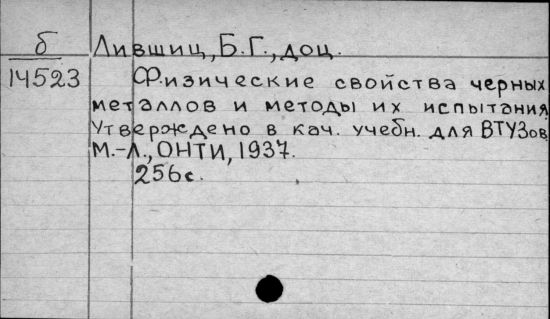 б Лившиц, Б.Г., доц.
14523 Физические свойства черных
металлов и методы их испытания
Утверждено в кач. учебн. для ВТУЗов
М.-Л., ОНТИ, 1937.
256с.